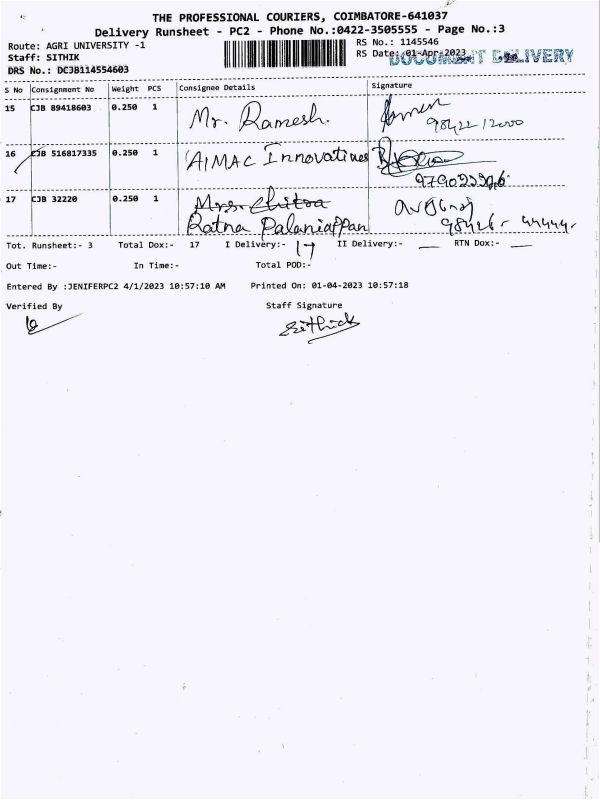 THE PROFESSIONAL COURIERS, COIMBATORE-641037
Delivery Runsheet - PC2 - Phone No.:0422-3505555 - Page No.:3
Route: AGRI UNIVERSITY -1
RS No.: 1145546
Staff: SITHIK
RS Date: 01-Apr-2023
DOCUMENT DELIVERY
DRS No.: DCJB114554603
S No Consignment No Weight PCS Consignee Details Signature
15 CJB 89418603 0.250 1 Mr. Ramesh.
98422 12000
16 CJB 516817335 0.250 1 AIMAC Innovatives
17 CJB 32220 0.250 1 Mrs. Chitra
Ratna Palaniappan 98426- 44444-
Tot. Runsheet:- 3 Total Dox:- 17 I Delivery:- 17 II Delivery:- — RTN Dox:- —
Out Time:- In Time:- Total POD:-
Entered By :JENIFERPC2 4/1/2023 10:57:10 AM Printed On: 01-04-2023 10:57:18
Verified By Staff Signature
Sithick